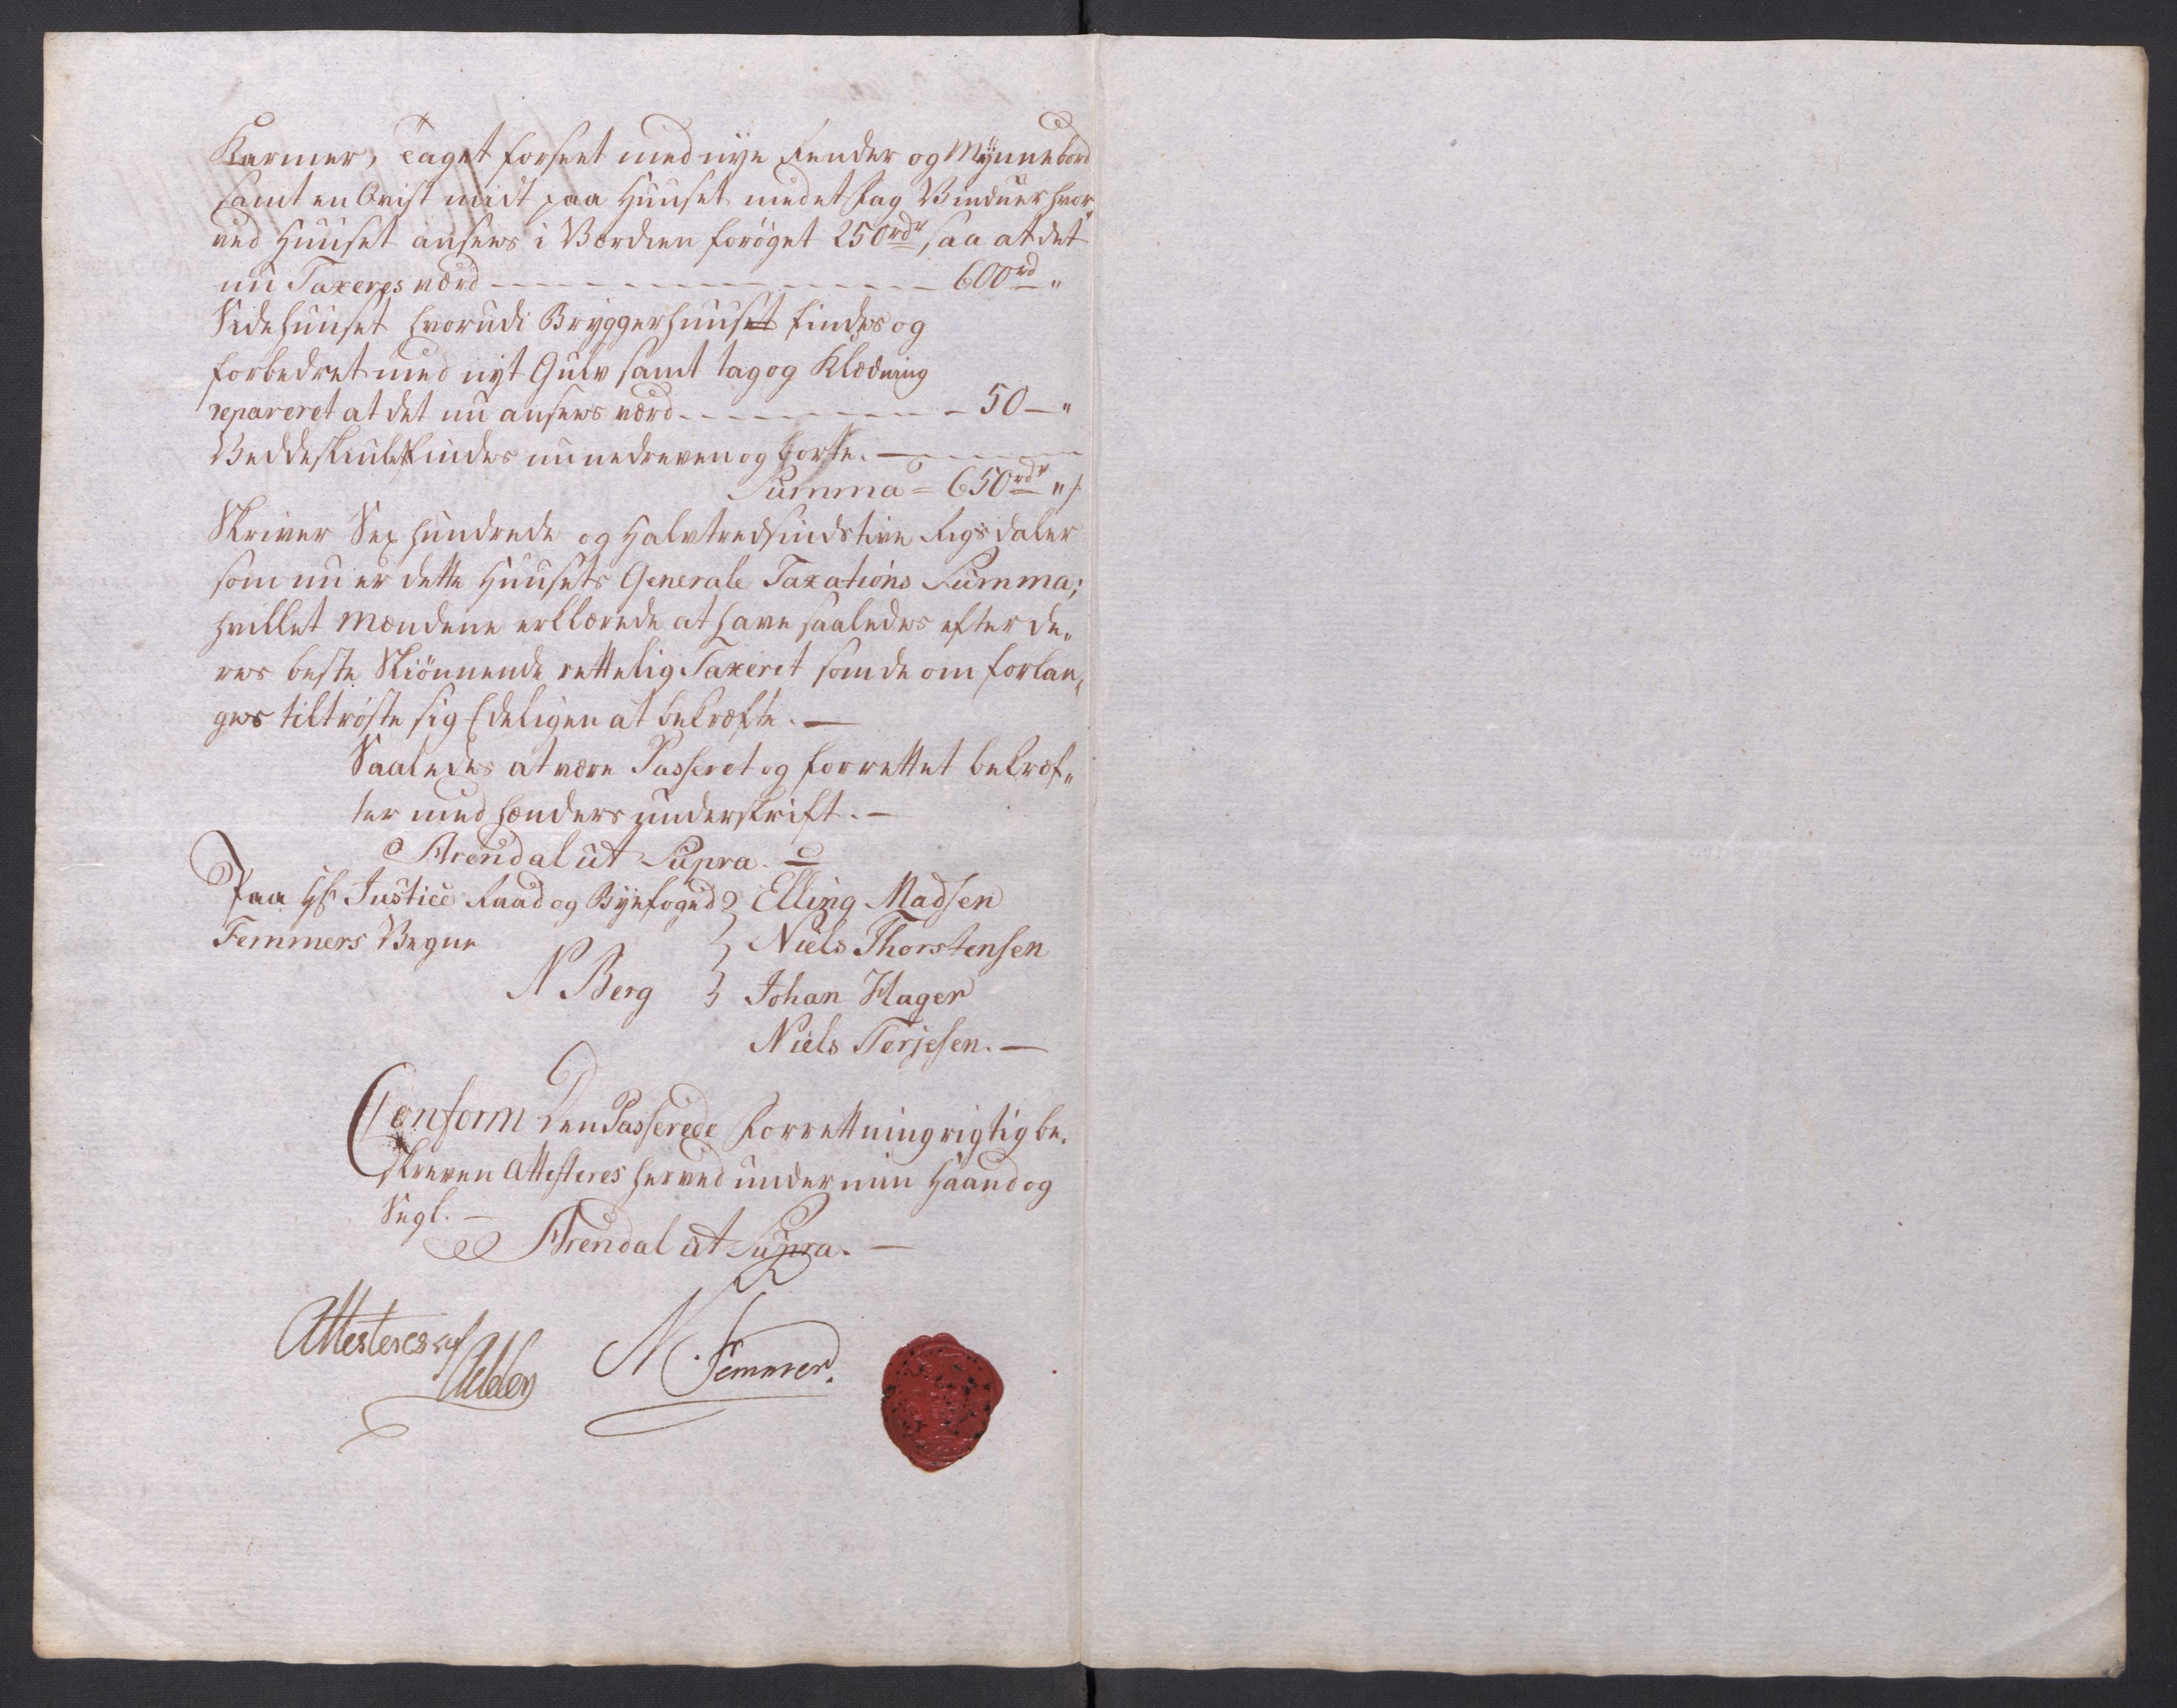 Karmer, Taget forseet med nye Render og Mynnebord
samt en Qvist midt paa Huuset med et Fag Vinduer hvor„
ved Huuset ansees i Værdien forøget 250 rdr, saa at det
nu Taxeres værd - - - - - - 600 rd „
Sidehuuset hvorudi Bryggerhuuset findes og
forbedret med nyt Gulv samt tag og Klædning
repareret at det nu ansees værd - - - - - - 50 — „
Veddeskiulet findes nu nedreven og borte. —
Summa = 650 rdr „ /
Skriver Sex hundrede og Halvtredsindstive Rigsdaler
som nu er dette Huusets Generale Taxations Summa;
hvilket Mændene erklærede at have saaledes efter de„
res beste Skiønnende rettelig Taxeret som de om forlan„
ges tiltrøste sig Edeligen at bekræfte. —
Saaledes at være Passeret og forrettet bekræf„
ter med hænders underskrift. —
Arendal ut Supra. —
Paa Hr Justice Raad og Byefoged Elling Madsen
Femmers Vegne Niels Thorstensen
N Berg Johan Hager
Niels Terjesen. —
Conform Den Passerede Forrettning rigtig be„
skreven Attesteres herved under min Haand og
Segl. —
Arendal ut Supra. —
Attesteres af N. Femmer.